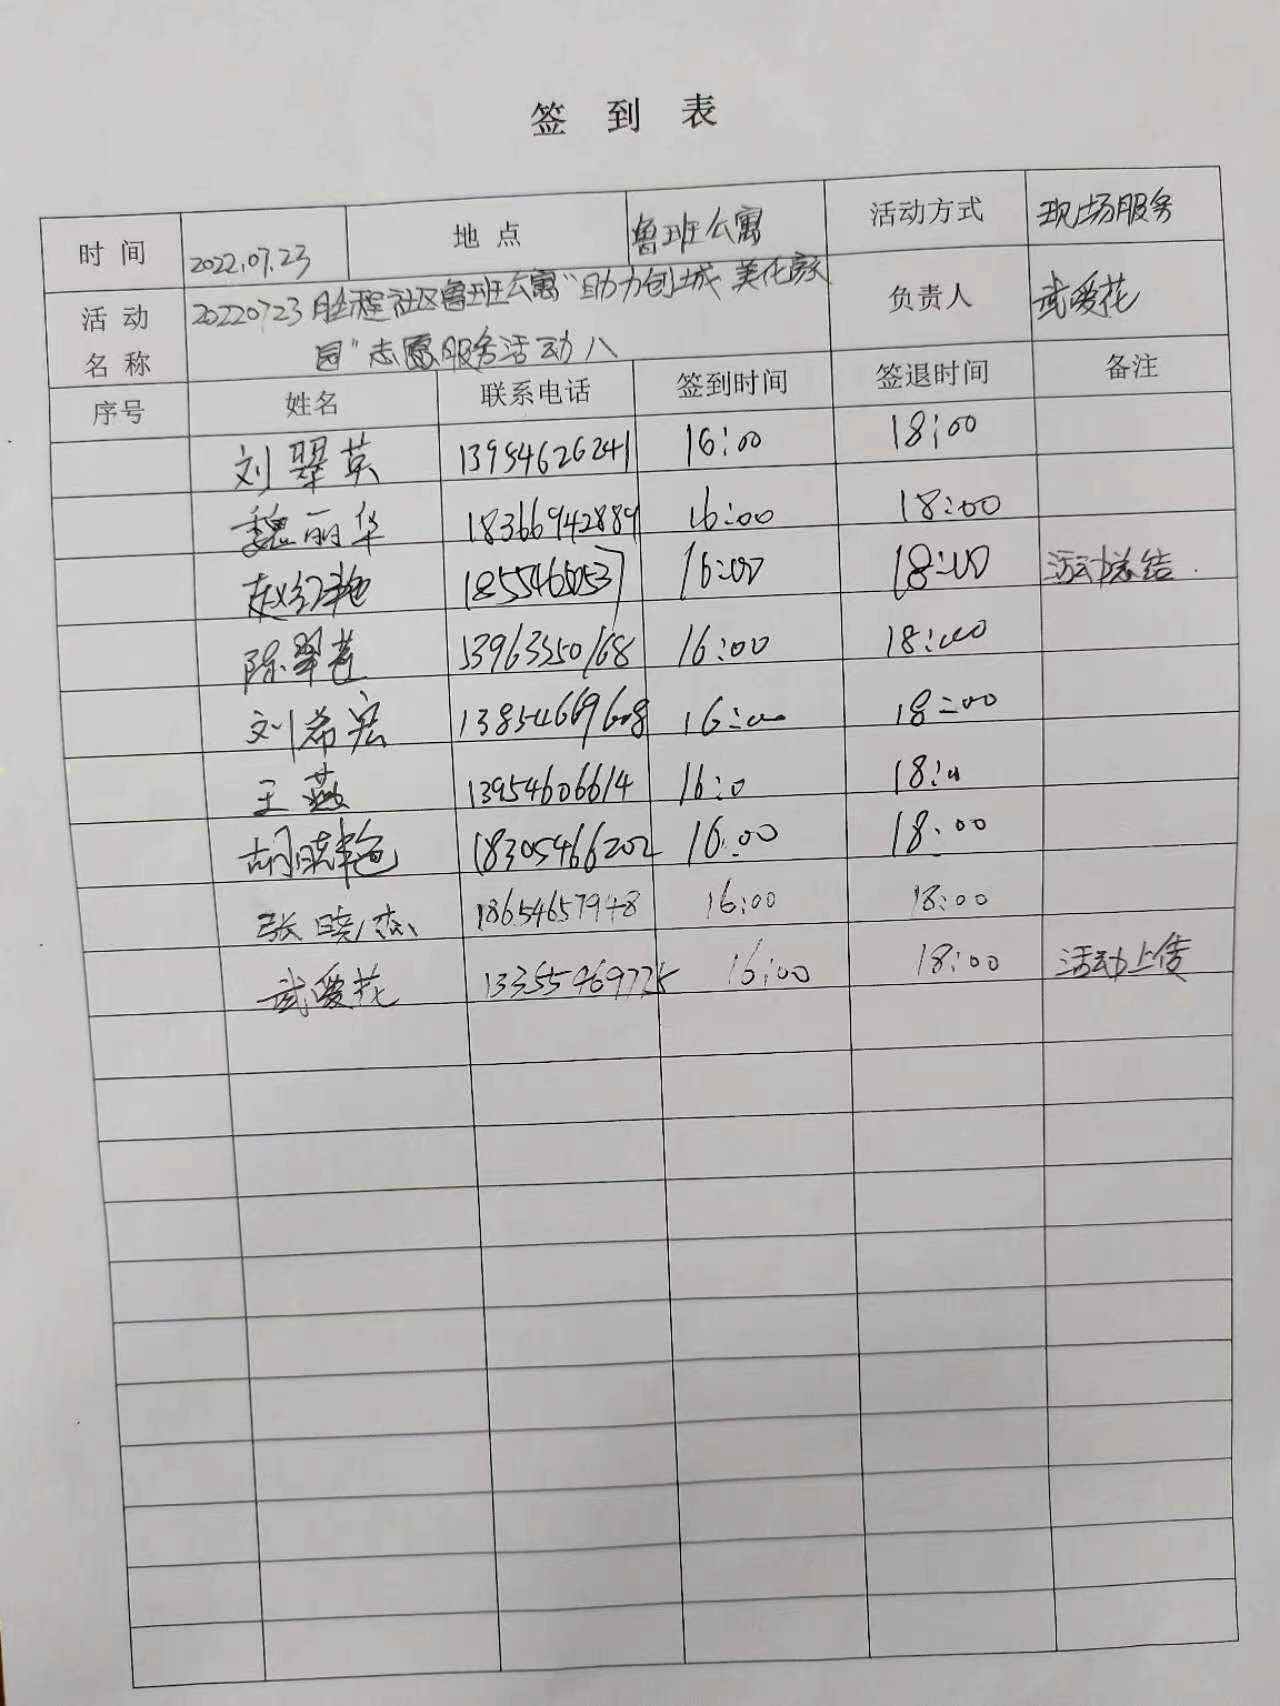 签 到 表
时 间 2022.07.23 地 点 鲁班公寓 活动方式 现场服务
活 动 名 称 20220723胜程社区鲁班公寓“助力创城 美化家
园”志愿服务活动八 负责人 武爱花
序号 姓名 联系电话 签到时间 签退时间 备注
刘翠英 13954626241 16:00 18:00
魏丽华 18366942889 16:00 18:00
赵红艳 16:00 18:00 活动总结.
陈翠 13963350168 16:00 18:00
刘希宏 13854669608 16:00 18:00
王燕 13954606614 16:0 18:0
胡晓艳 18305466202 16:00 18:00
张晓杰 18654657948 16:00 18:00
武爱花 13355469775 16:00 18:00 活动上传